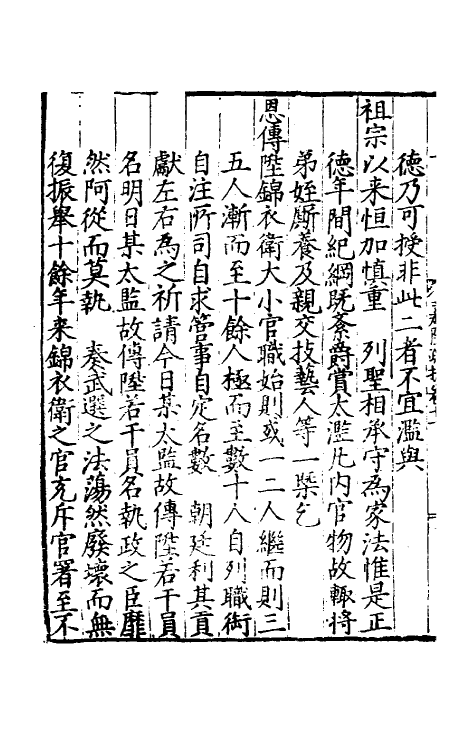 德乃可授非此二者不宜濫與
祖宗以来恒加慎重　列聖相承守為家法惟是正
德年間紀綱既紊爵賞太濫凡内官物故輙将
弟姪厮養及親交技藝人等一槩乞
恩傳陞錦衣衛大小官職始則或一二人繼而則三
五人漸而至十餘人極而至數十人自列職銜
自注所司自求管事自定名數　朝廷利其貢
獻左右為之祈請今日某太監故傳陞若干員
名明日某太監故傳陞若干員名執政之臣靡
然阿從而莫執　奏武選之法蕩然廢壞而無
復振舉十餘年来錦衣衛之官充斥官署至不